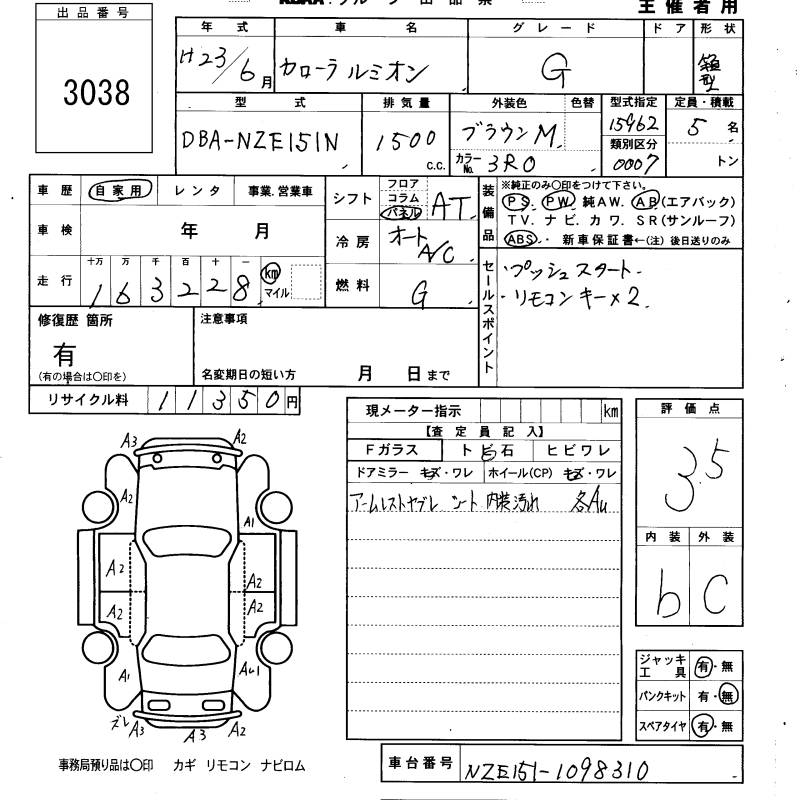 主催者用
出品番号
3038
年式 車名 グレード ドア 形状
H23/6月 カローラ ルミオン G 箱型
型式 排気量 外装色 色替 型式指定 定員・積載
DBA-NZE151N 1500 c.c. ブラウンM 15962 5名
カラーNo. 3R0 類別区分 0007 トン
車歴 自家用 レンタ 事業.営業車
シフト フロア コラム パネル AT
装備品 ※純正のみ〇印をつけて下さい。
PS. PW. 純AW. AB(エアバック)
TV. ナビ. カワ. SR(サンルーフ)
ABS. 新車保証書←(注) 後日送りのみ
車検 年 月
冷房 オートA/C
走行 十万 万 千 百 十 一
163228 km マイル
燃料 G
セールスポイント ・プッシュスタート.
・リモコンキー×2.
修復歴 箇所
有
(有の場合は〇印を)
注意事項
名変期日の短い方 月 日まで
リサイクル料 11350円
現メーター指示 km
【査定員記入】
Fガラス ト石 ヒビワレ
ドアミラー キズ・ワレ ホイール(CP) キズ・ワレ
アームレストヤブレ シート 内装汚れ 各AU
評価点
3.5
内装 外装
b C
A3 A2
A2
A1
A2 A2
A2 A2
A1 AU1
ズレ A3 A3 A2
ジャッキ工具 有・無
パンクキット 有・無
スペアタイヤ 有・無
事務局預り品は〇印 カギ リモコン ナビロム
車台番号 NZE151-1098310